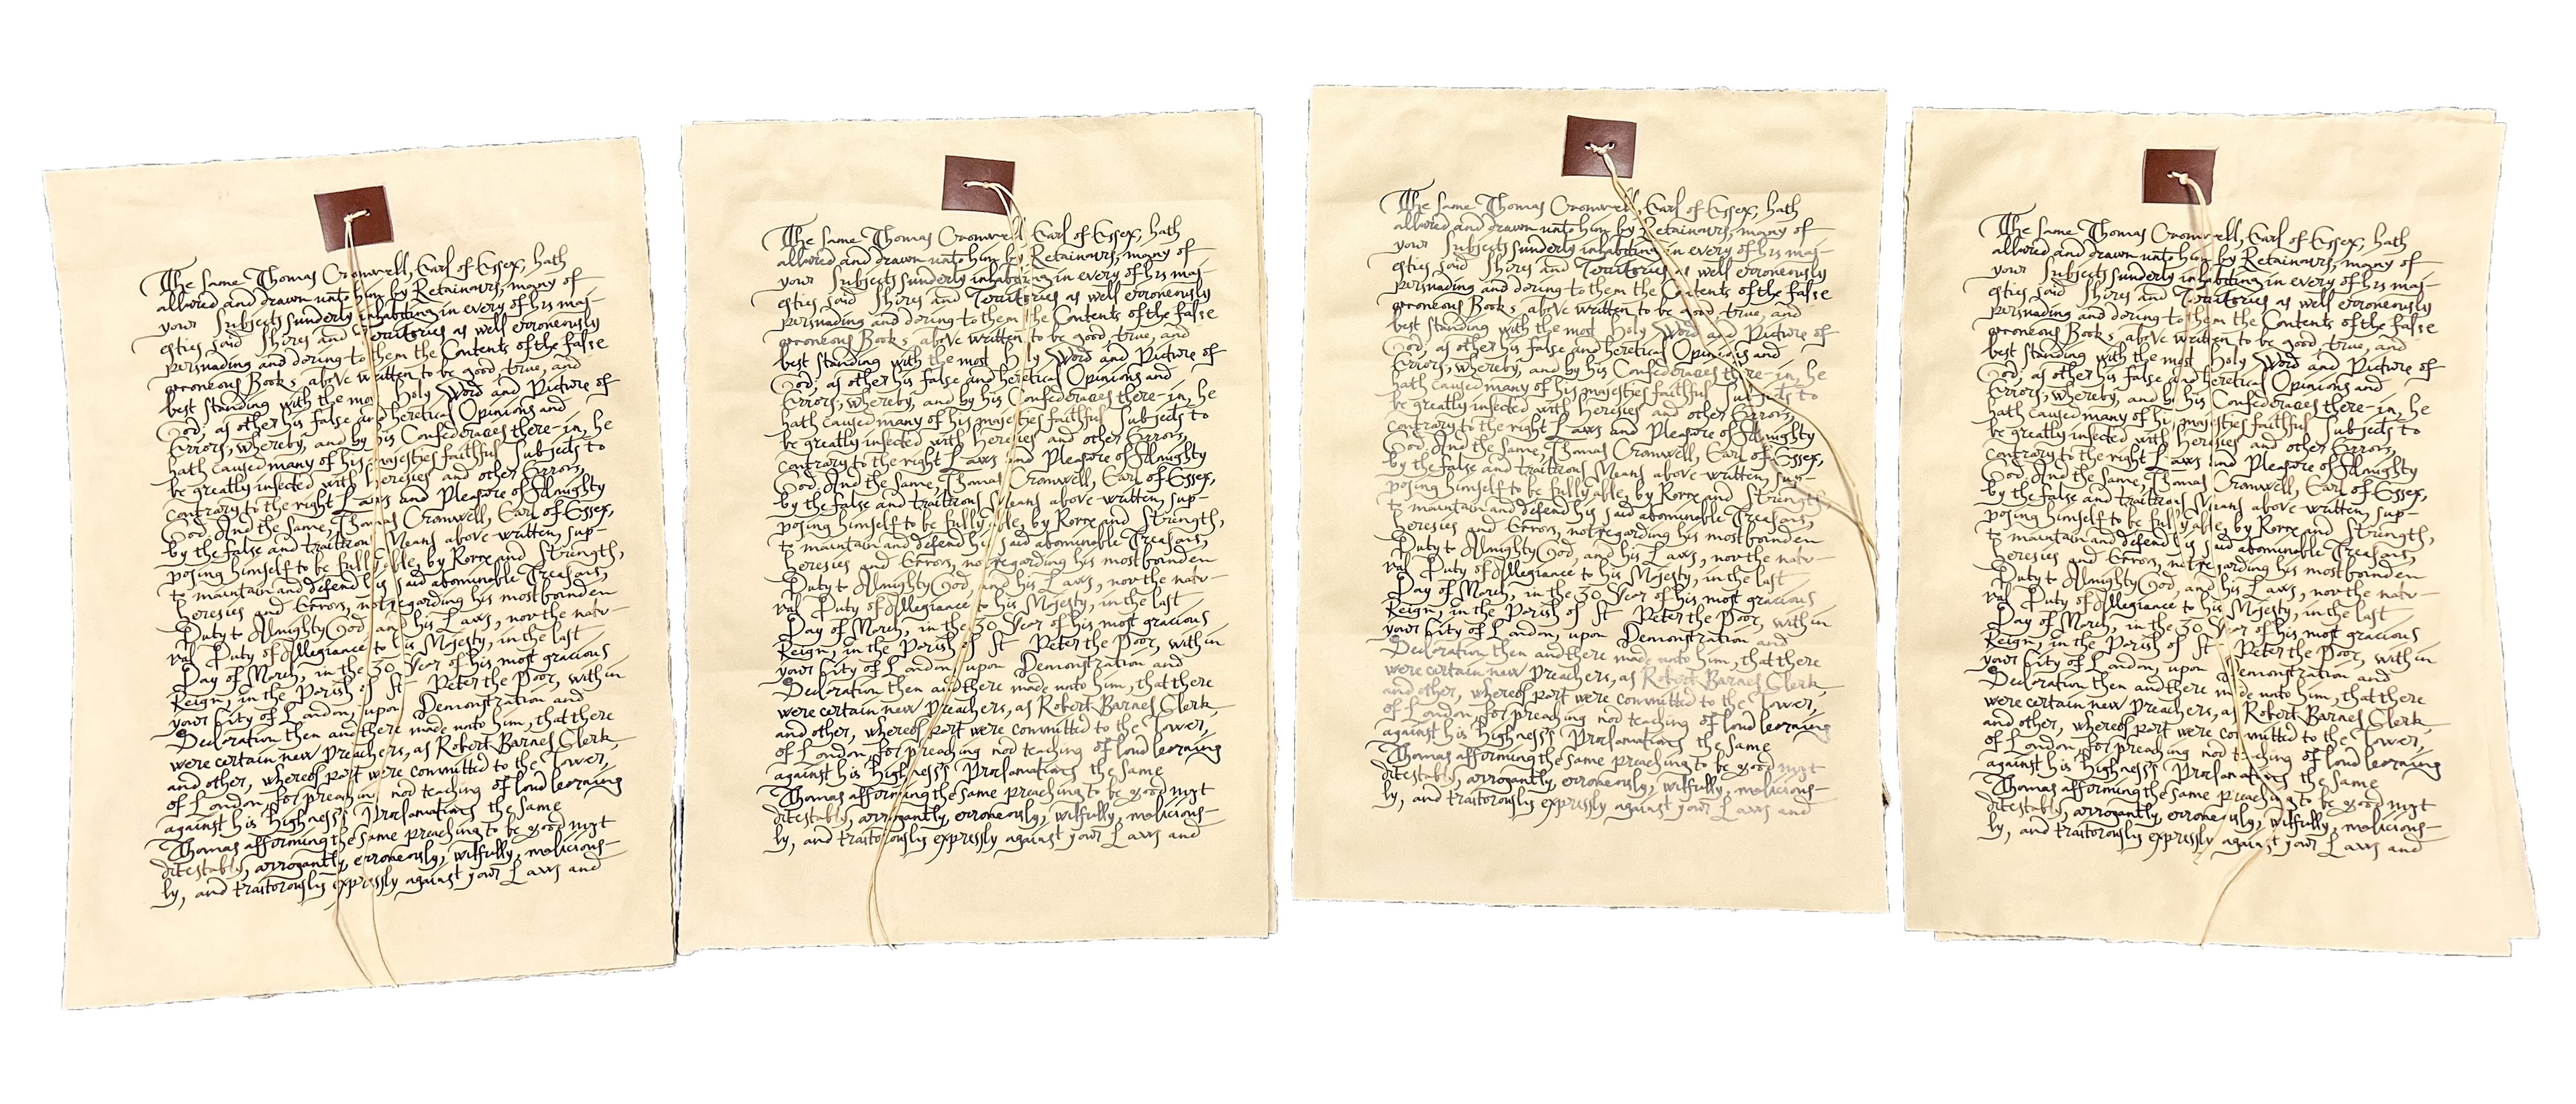 The same Thomas Cromwell, Earl of Essex, hath
allured and drawn unto him by Retainours, many of
your Subjects sunderly inhabiting in every of his maj-
esties said Shires and Territories as well erroneously
persuading and doring to them the Contents of the false
erroneous Books above written to be good, true, and
best standing with the most Holy Word and Picture of
God; as other his false and heretical Opinions and
Errors; whereby, and by his Confederacies there-in, he
hath caused many of his majesties faithful Subjects to
be greatly infected with heresies and other Errors,
contrary to the right Laws and Pleasure of Almighty
God. And the same, Thomas Cromwell, Earl of Essex,
by the false and traitrous Means above-written, sup-
posing himself to be fully able, by Force and Strength,
to maintain and defend his said abominable Treasons,
heresies and Errors, not regarding his most bounden
Duty to Almighty God, and his Laws, nor the natu-
ral Duty of Allegiance to his Majesty, in the last
Day of March, in the 30 Year of his most gracious
Reign, in the Parish of St Peter the Poor, within
your City of London, upon Demonstration and
Declaration then and there made unto him, that there
were certain new Preachers, as Robert Barnes Clerk,
and other, whereof part were committed to the Tower,
of London, for preaching nor teaching of loud learning
against his Highness's Proclamations the same
Thomas afforming the same preaching to be good most
ditestably, arrogantly, erroneously, wilfully, malicious-
ly, and traitorously expressly against your Laws and
The same Thomas Cromwell, Earl of Essex, hath
allured and drawn unto him by Retainours, many of
your Subjects sunderly inhabiting in every of his maj-
esties said Shires and Territories as well erroneously
persuading and doring to them the Contents of the false
erroneous Books above written to be good, true, and
best standing with the most Holy Word and Picture of
God; as other his false and heretical Opinions and
Errors; whereby, and by his Confederacies there-in, he
hath caused many of his majesties faithful Subjects to
be greatly infected with heresies and other Errors,
contrary to the right Laws and Pleasure of Almighty
God. And the same, Thomas Cromwell, Earl of Essex,
by the false and traitrous Means above-written, sup-
posing himself to be fully able, by Force and Strength,
to maintain and defend his said abominable Treasons,
heresies and Errors, not regarding his most bounden
Duty to Almighty God, and his Laws, nor the natu-
ral Duty of Allegiance to his Majesty, in the last
Day of March, in the 30 Year of his most gracious
Reign, in the Parish of St Peter the Poor, within
your City of London, upon Demonstration and
Declaration then and there made unto him, that there
were certain new Preachers, as Robert Barnes Clerk,
and other, whereof part were committed to the Tower,
of London, for preaching nor teaching of loud learning
against his Highness's Proclamations the same
Thomas afforming the same preaching to be good most
ditestably, arrogantly, erroneously, wilfully, malicious-
ly, and traitorously expressly against your Laws and
The same Thomas Cromwell, Earl of Essex, hath
allured and drawn unto him by Retainours, many of
your Subjects sunderly inhabiting in every of his maj-
esties said Shires and Territories as well erroneously
persuading and doring to them the Contents of the false
erroneous Books above written to be good, true, and
best standing with the most Holy Word and Picture of
God; as other his false and heretical Opinions and
Errors; whereby, and by his Confederacies there-in, he
hath caused many of his majesties faithful Subjects to
be greatly infected with heresies and other Errors,
contrary to the right Laws and Pleasure of Almighty
God. And the same, Thomas Cromwell, Earl of Essex,
by the false and traitrous Means above-written, sup-
posing himself to be fully able, by Force and Strength,
to maintain and defend his said abominable Treasons,
heresies and Errors, not regarding his most bounden
Duty to Almighty God, and his Laws, nor the natu-
ral Duty of Allegiance to his Majesty, in the last
Day of March, in the 30 Year of his most gracious
Reign, in the Parish of St Peter the Poor, within
your City of London, upon Demonstration and
Declaration then and there made unto him, that there
were certain new Preachers, as Robert Barnes Clerk,
and other, whereof part were committed to the Tower,
of London, for preaching nor teaching of loud learning
against his Highness's Proclamations the same
Thomas afforming the same preaching to be good most
ditestably, arrogantly, erroneously, wilfully, malicious-
ly, and traitorously expressly against your Laws and
The same Thomas Cromwell, Earl of Essex, hath
allured and drawn unto him by Retainours, many of
your Subjects sunderly inhabiting in every of his maj-
esties said Shires and Territories as well erroneously
persuading and doring to them the Contents of the false
erroneous Books above written to be good, true, and
best standing with the most Holy Word and Picture of
God; as other his false and heretical Opinions and
Errors; whereby, and by his Confederacies there-in, he
hath caused many of his majesties faithful Subjects to
be greatly infected with heresies and other Errors,
contrary to the right Laws and Pleasure of Almighty
God. And the same, Thomas Cromwell, Earl of Essex,
by the false and traitrous Means above-written, sup-
posing himself to be fully able, by Force and Strength,
to maintain and defend his said abominable Treasons,
heresies and Errors, not regarding his most bounden
Duty to Almighty God, and his Laws, nor the natu-
ral Duty of Allegiance to his Majesty, in the last
Day of March, in the 30 Year of his most gracious
Reign, in the Parish of St Peter the Poor, within
your City of London, upon Demonstration and
Declaration then and there made unto him, that there
were certain new Preachers, as Robert Barnes Clerk,
and other, whereof part were committed to the Tower,
of London, for preaching nor teaching of loud learning
against his Highness's Proclamations the same
Thomas afforming the same preaching to be good most
ditestably, arrogantly, erroneously, wilfully, malicious-
ly, and traitorously expressly against your Laws and